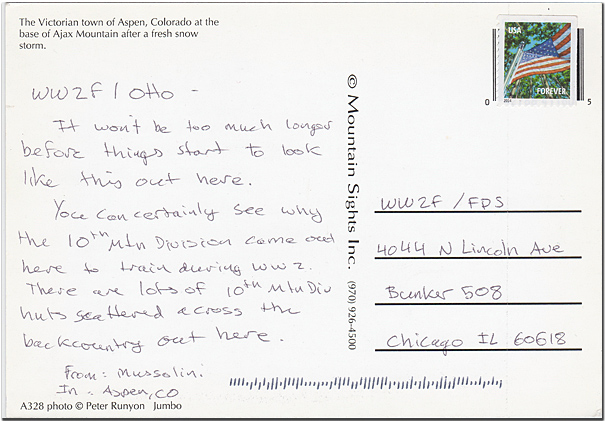 The Victorian town of Aspen, Colorado at the
base of Ajax Mountain after a fresh snow
storm.
USA
FOREVER
2014
0 5
WW2F / Otto -
It won't be too much longer
before things start to look
like this out here.
You can certainly see why
the 10th Mtn Division came out
here to train during WW2.
There are lots of 10th Mtn Div
huts scattered across the
backcountry out here.
From: Mussolini
In: Aspen, CO
© Mountain Sights Inc. (970) 926-4500
WW2F / FDS
4044 N Lincoln Ave
Bunker 508
Chicago IL 60618
A328 photo © Peter Runyon Jumbo